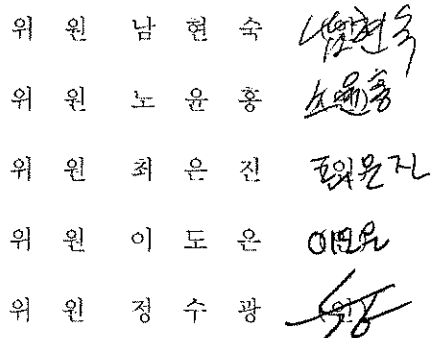 위 원 남 현 숙 남현숙
위 원 노 윤 홍
위 원 최 은 진 최은진
위 원 이 도 은 이도은
위 원 정 수 광 (인)